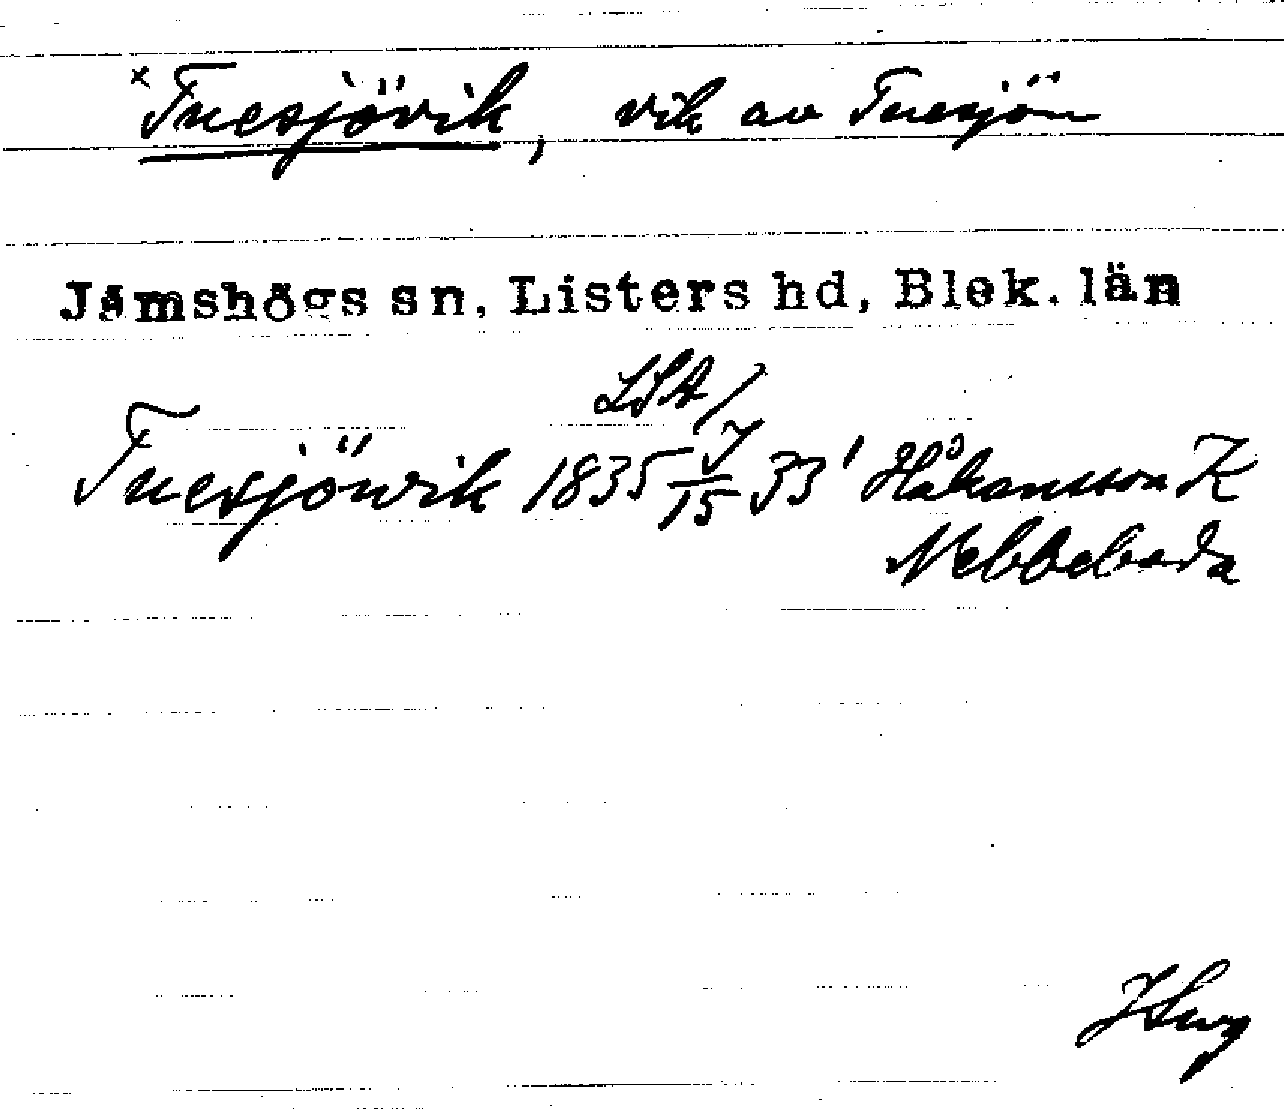 × Tuesjövik, vik av Tuesjön
Jämshögs sn, Listers hd, Blek. län
LSA/
Tuesjöwik 1835 J/15 33' Håkansson K
Nebbeboda